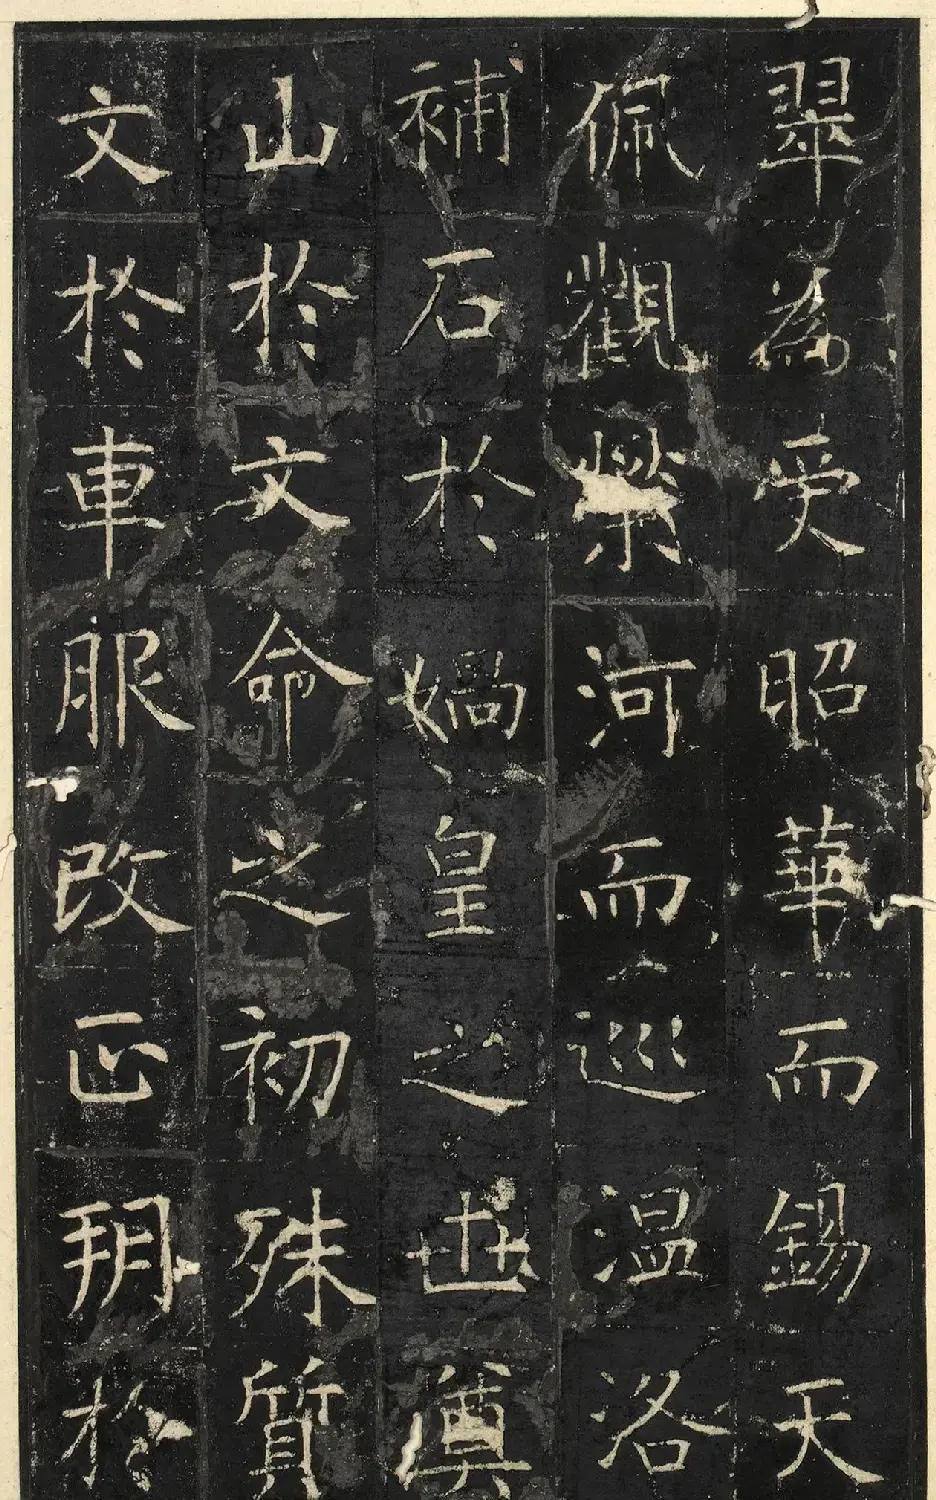 翠為受昭華而錫天
佩觀榮河而巡溫洛
補石於媧皇之世奠
山於文命之初殊質
文於車服改正朔於